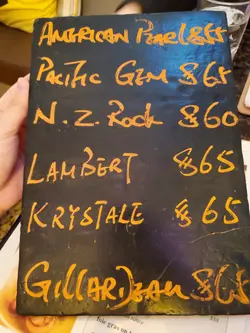 AMERICAN PEARL $68
PACIFIC GEM $68
N.Z. ROCK $60
LAMBERT $65
KRYSTALE $65
GILLARDEAU $68
foie gras on